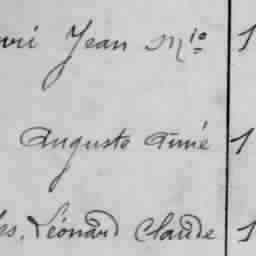 Jean M^ie 1
Auguste Aimé 1
Léonard Claude 1